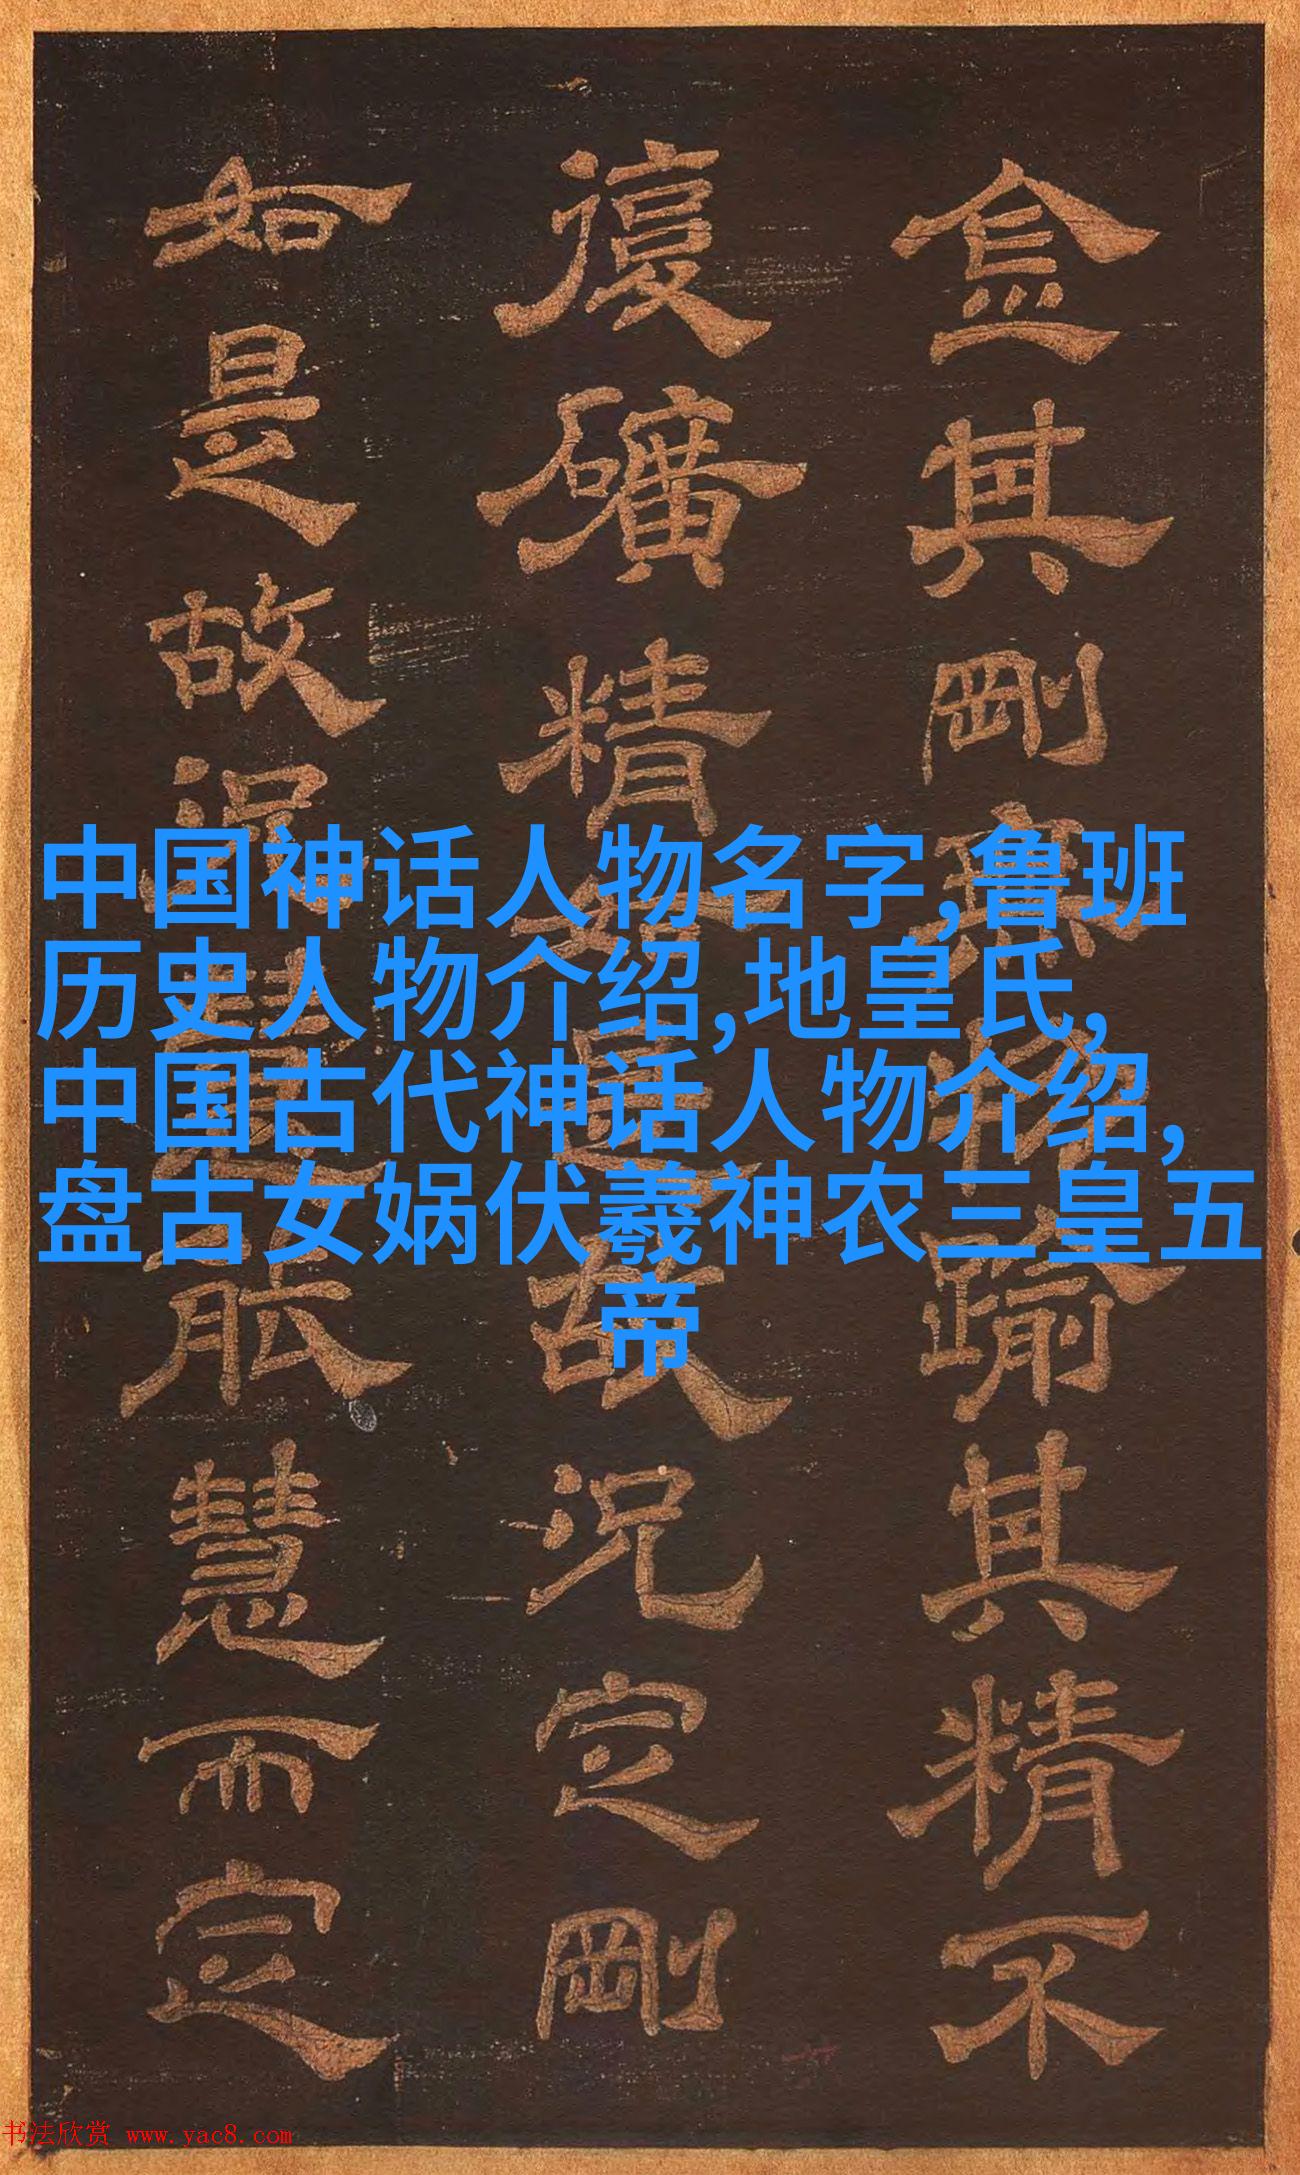 其剛
踰其精不
復礦精如是故況定剛
如是故況慧能慧而定
中国神话人物名字,鲁班
历史人物介绍,地皇氏,
中国古代神话人物介绍,
盘古女娲伏羲神农三皇五
帝
书法欣赏 www.yac8.com